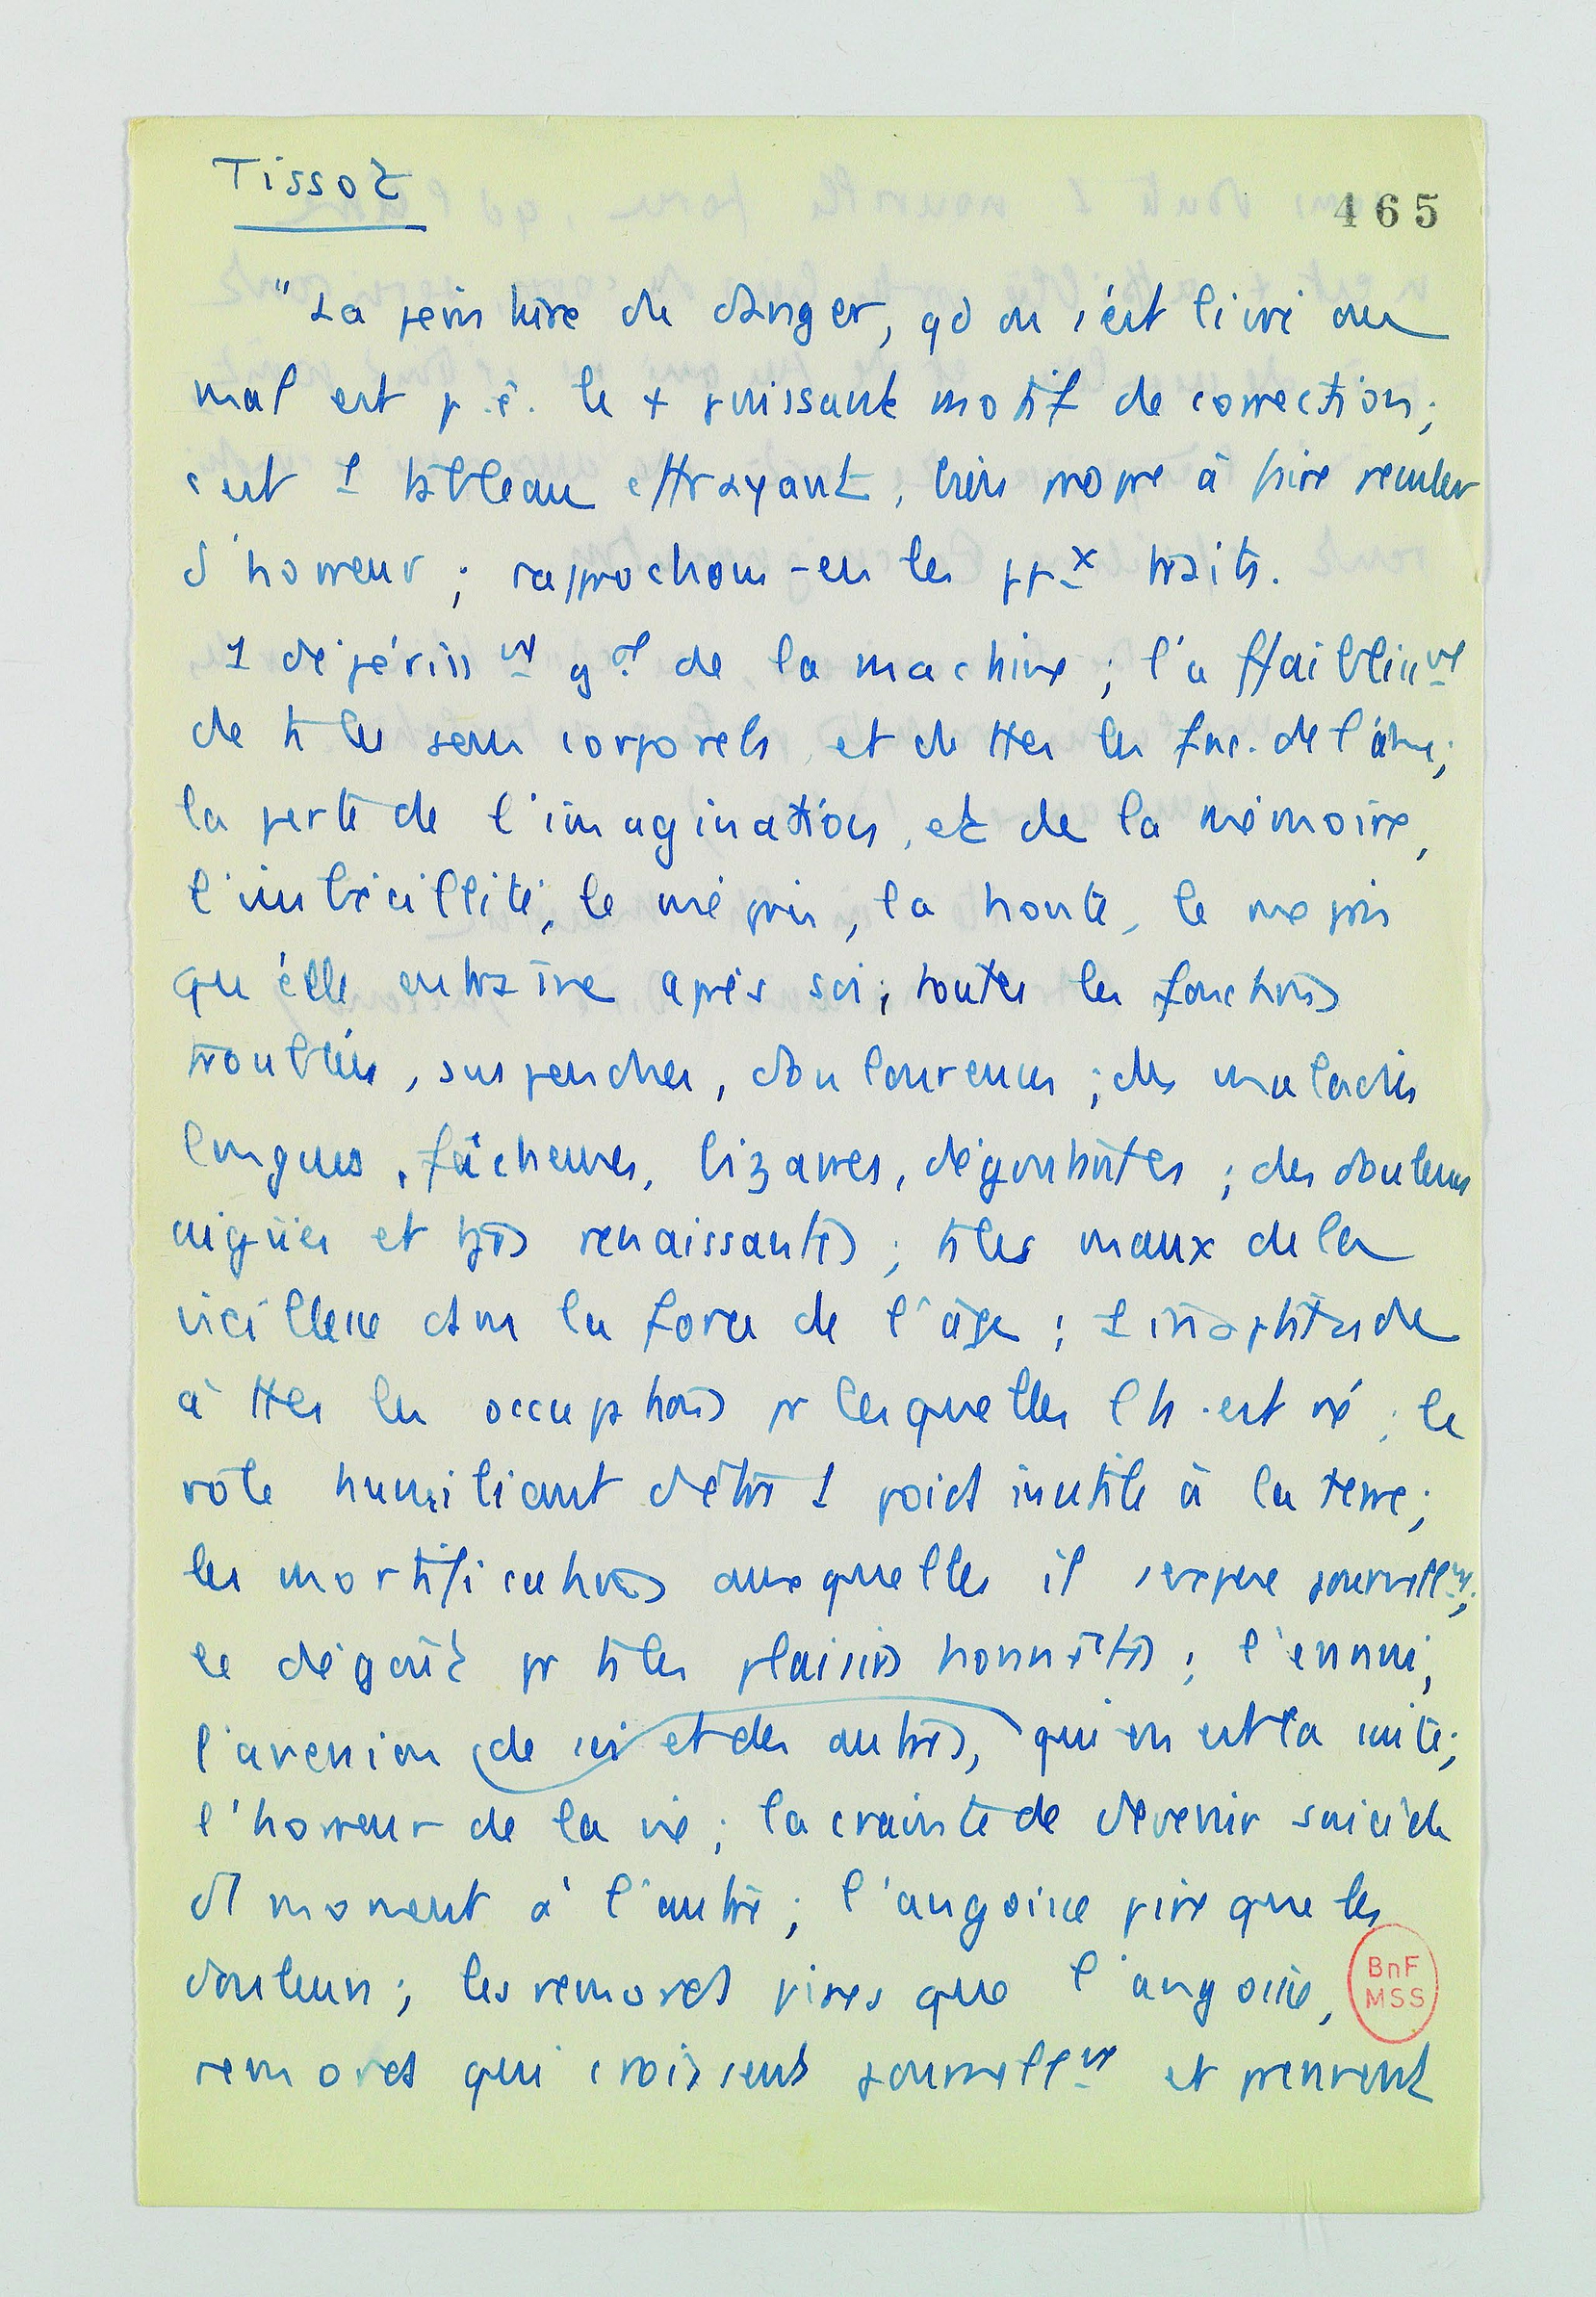 Tissot
465
"La peinture du danger, qd on s'est livré au
mal est p.ê. le + puissant motif de correction;
c'est 1 tableau effrayant, bien propre à faire reculer
d'horreur; rapprochons-en les ppx traits.
1 dépérissnt gal de la machine; l'affaiblissnt
de ts les sens corporels et de ttes les fac. de l'âme;
la perte de l'imagination, et de la mémoire,
l'imbécillité, le mépris, la honte, le mépris
qu'elle entraîne après soi; toutes les fonctions
troublées, suspendues, douloureuses; des maladies
longues, fâcheuses, bizarres, dégoûtantes; des douleurs
aigües et tjrs renaissantes; ts les maux de la
vieillesse dans la force de l'âge; 1 inaptitude
à ttes les occupations pr lesquelles l'h. est né; le
rôle humiliant d'être 1 poids inutile à la terre;
les mortifications auxquelles il s'expose journellnt;
le dégoût pr ts les plaisirs honnêtes; l'ennui,
l'aversion de soi et des autres, qui en est la suite;
l'horreur de la vie; la crainte de devenir suicide
d'1 moment à l'autre; l'angoisse pire que les
douleurs; les remords pires que l'angoisse,
remords qui croissent journellnt et prennent
BnF
MSS